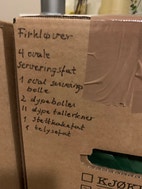 Firkløver
4 ovale
serveringsfat
1 oval serverings
bolle
2 dype boller
11 dype tallerkner
1 stettkakefat
1 telysefat
KJØK